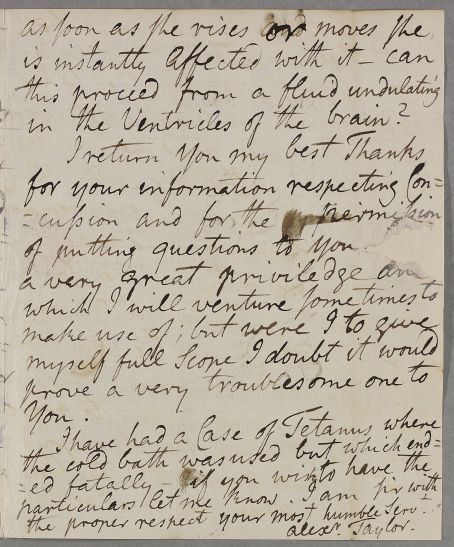 as soon as she rises and moves she
is instantly affected with it – can
this proceed from a fluid undulating
in the Ventricles of the brain?
I return you my best Thanks
for your information respecting Con=
=cussion and for the permission
of putting questions to you
a very great priviledge and
which I will venture sometimes to
make use of; but were I to give
myself full Scope I doubt it would
prove a very troublesome one to
You.
I have had a Case of Tetanus where
the cold bath was used but which end=
=ed fatally – if you wish to have the
particulars let me know. I am sir with
the proper respect your most humble Serv.
Alexr. Taylor.